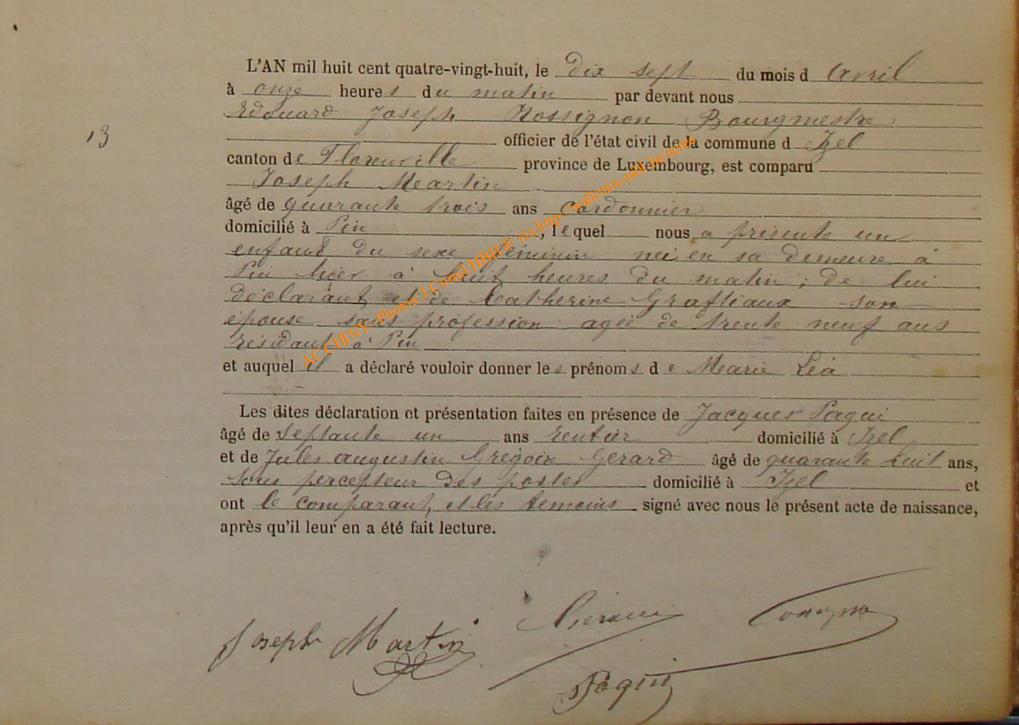 L'AN mil huit cent quatre-vingt-huit, le dix sept du mois d avril
à onze heures du matin par devant nous
Edouard Joseph Rossignon Bourgmestre
13
officier de l'état civil de la commune d Izel
canton de Florenville province de Luxembourg, est comparu
Joseph Martin
âgé de quarante trois ans cordonnier
domicilié à Pin, lequel nous a présenté un
enfant du sexe féminin né en sa demeure à
Pin hier à huit heures du matin ; de lui
déclarant et de Catherine Graftiaux son
épouse sans profession agée de trente neuf ans
résidant à Pin
et auquel il a déclaré vouloir donner les prénoms de Marie Léa
Les dites déclaration et présentation faites en présence de Jacques Paqui
âgé de septante un ans rentier domicilié à Izel
et de Jules augustin Grégoire Gerard âgé de quarante huit ans,
sous percepteur des postes domicilié à Izel et
ont le comparant, et les temoins signé avec nous le présent acte de naissance,
après qu'il leur en a été fait lecture.
Joseph Martin
Paqui